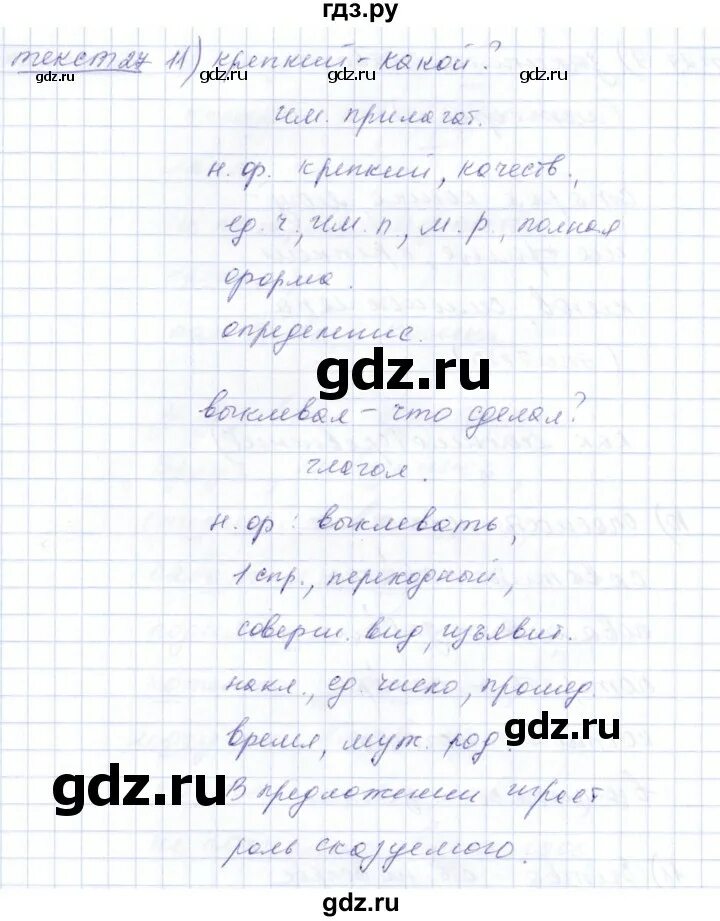 гдз.ру
текст 27 11) крепкий - какой?
gdz.ru gdz.ru gdz.ru gdz.ru
им. прилагат.
н. ф. крепкий, качеств.,
ед. ч., им. п., м. р., полная
gdz.ru gdz.ru
форма.
определение.
gdz.ru
выклевал - что сделал?
gdz.ru gdz.ru
глагол.
н. ф: выклевать,
1 спр., переходный,
gdz.ru gdz.ru
соверш. вид, изъявит.
накл., ед. число, прошед.
gdz.ru
время, муж. род.
gdz.ru
В предложении играет
gdz.ru gdz.ru
роль сказуемого.